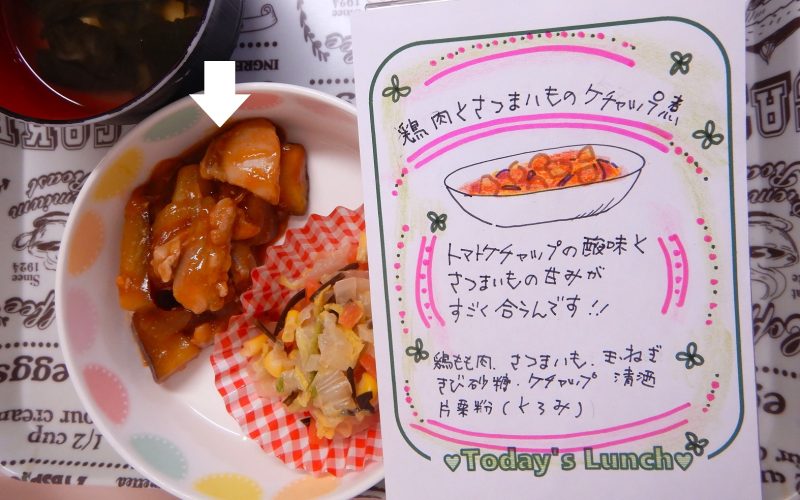 鶏肉とさつまいものケチャップ煮
トマトケチャップの酸味と
さつまいもの甘みが
すごく合うんです!!
鶏もも肉、さつまいも、玉ねぎ
きび砂糖・ケチャップ 清酒
片栗粉(とろみ)
♥Today's Lunch♥
INGRE
Premium
Roast
Since
1924
Coffee
eggs
1/2 cup
our cream